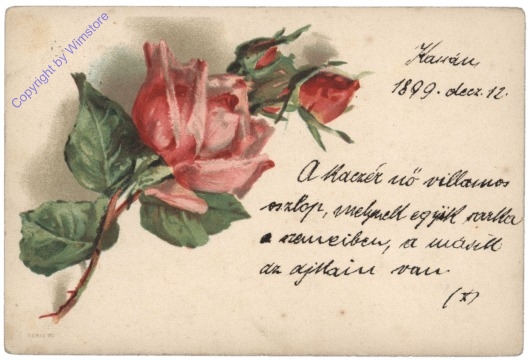 Copyright by Wimstore
Kassán,
1899. decz. 12.
A kaczér nő villamos
oszlop, melynek egyik sarka
a szemeiben, a másik
az ajkain van.
(x)